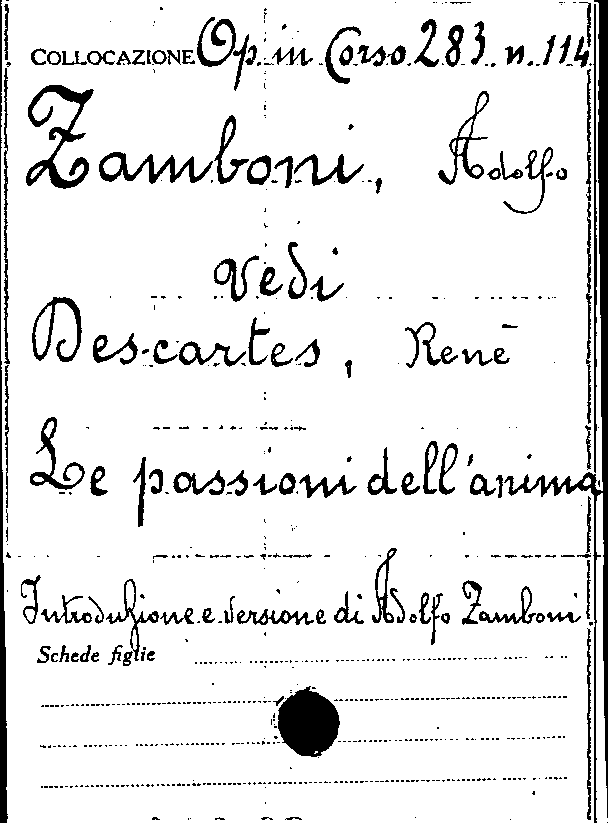 COLLOCAZIONE Op. in Corso 283 n. 114
Zamboni, Adolfo
Vedi
Descartes, René
Le passioni dell'anima
Introduzione e versione di Adolfo Zamboni
Schede figlie